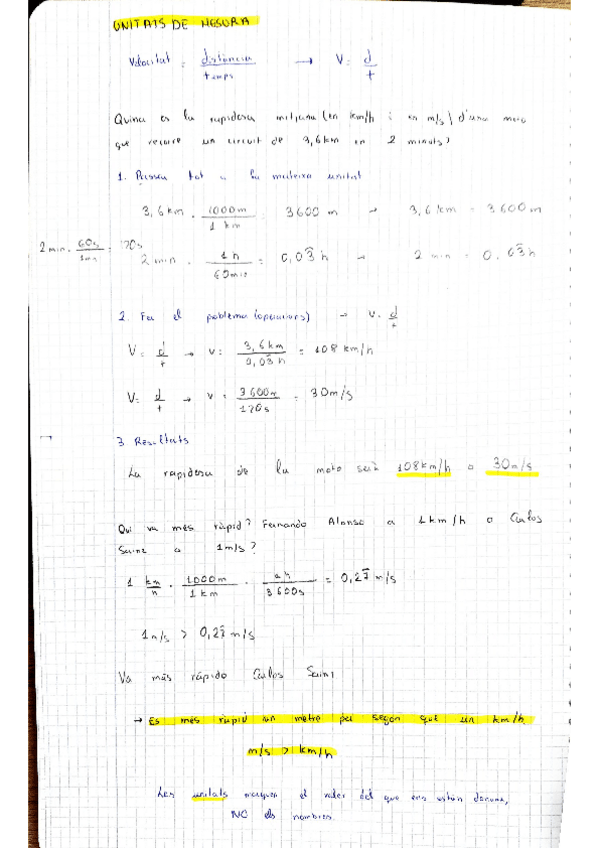 UNITATS DE MESURA
Velocitat = distància / temps → V = d / t
Quina es la rapidesa mitjana (en km/h i en m/s) d'una moto
que recorre un circuit de 3,6 km en 2 minuts?
1. Passem tot a la mateixa unitat
3,6 km . 1000m / 1 km = 3600 m → 3,6 km = 3600 m
2 min . 60s / 1min = 120s
2 min . 1h / 60min = 0,03̄ h → 2 min = 0,03̄ h
2. Fer el problema (operacions) → v = d / t
V = d / t → v = 3,6 km / 0,03̄ h = 108 km/h
V = d / t → v = 3600m / 120s = 30m/s
3 Resultats
La rapidesa de la moto serà 108km/h o 30m/s
Qui va més ràpid? Fernando Alonso a 1km/h o Carlos
Sainz a 1m/s?
1 km / h . 1000m / 1 km . 1h / 3600s = 0,27̄ m/s
1m/s > 0,27̄ m/s
Va más rápido Carlos Sainz
→ Es més ràpid un metre per segon que un km/h
m/s > km/h
Les unitats marquen el valor del que ens estàn donant,
NO els nombres.